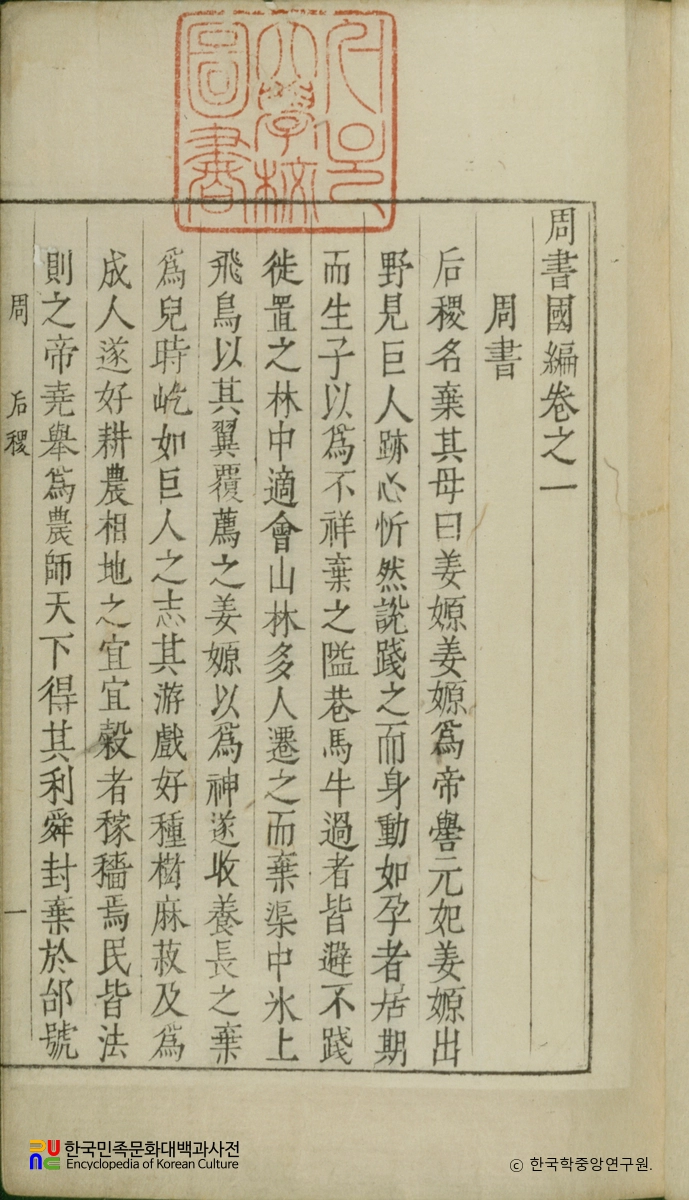 周書國編卷之一
周書
后稷名棄其母曰姜嫄姜嫄爲帝嚳元妃姜嫄出
野見巨人跡心忻然說踐之而身動如孕者居期
而生子以爲不祥棄之隘巷馬牛過者皆避不踐
徙置之林中適會山林多人遷之而棄渠中氷上
飛鳥以其翼覆薦之姜嫄以爲神遂收養長之棄
爲兒時屹如巨人之志其游戲好種樹麻菽及爲
成人遂好耕農相地之宜宜穀者稼穡焉民皆法
則之帝堯舉爲農師天下得其利舜封棄於邰號
周 后稷 一
大學校
圖書
한국민족문화대백과사전
Encyclopedia of Korean Culture
© 한국학중앙연구원.